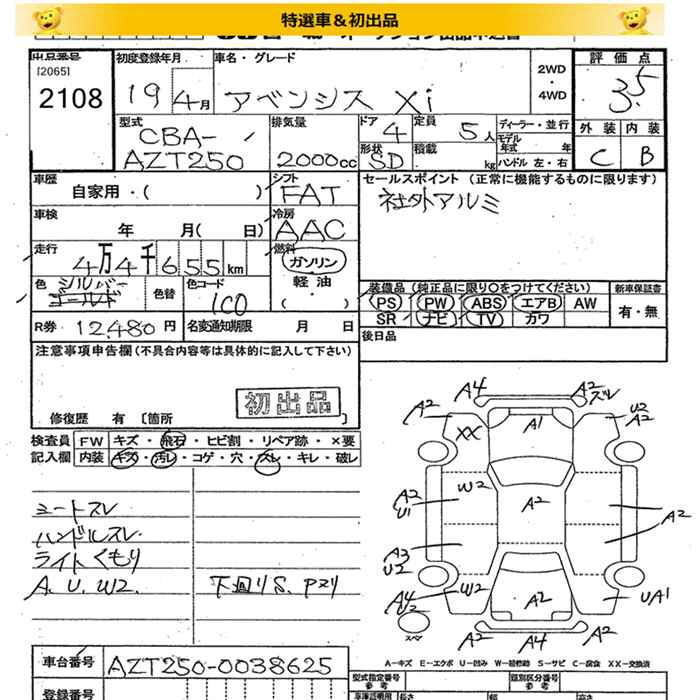 特選車＆初出品
出品番号 初度登録年月 車名・グレード 評価点
[2065]
2108 19 4月 アベンシス Xi 2WD・4WD 3.5
型式 排気量 ドア 定員 ディーラー・並行 外装 内装
CBA-AZT250 2000cc 4 5人 モデル年式 年 C B
形状 SD 積載 kg ハンドル 左・右
車歴 シフト セールスポイント (正常に機能するものに限ります)
自家用・( ) FAT 社外アルミ
車検 冷房
年 月( 日) AAC
走行 燃料
4万4千655km ガソリン
色 シルバー 色替 色コード 軽油・( )
ゴールド 1C0
装備品 (純正品に限り○をつけてください) 新車保証書
PS PW ABS エアB AW 有・無
SR ナビ TV カワ
R券 12,480円 名変通知期限 月 日
後日品
注意事項申告欄 (不具合内容等は具体的に記入して下さい)
初出品
修復歴 有 [箇所
検査員 FW キズ・飛石・ヒビ割・リペア跡・×要
記入欄 内装 キズ・汚レ・コゲ・穴・スレ・キレ・破レ
シートスレ
ハンドルスレ
ライトくもり
A. U. W2. 下回りS. Pサリ
A4 A2 ズレ
A2 A1 U2 A2
XX
W2
A2 U1 A2 A2
A3 U2
W2
A4 U2 A2 UA1
スペア
A2 A4 A2
A-キズ E-エクボ U-凹み W-補修跡 S-サビ C-腐食 XX-交換済
車台番号 AZT250-0038625
型式指定番号 参考 類別区分番号 参考
登録番号 長さ 幅 高さ